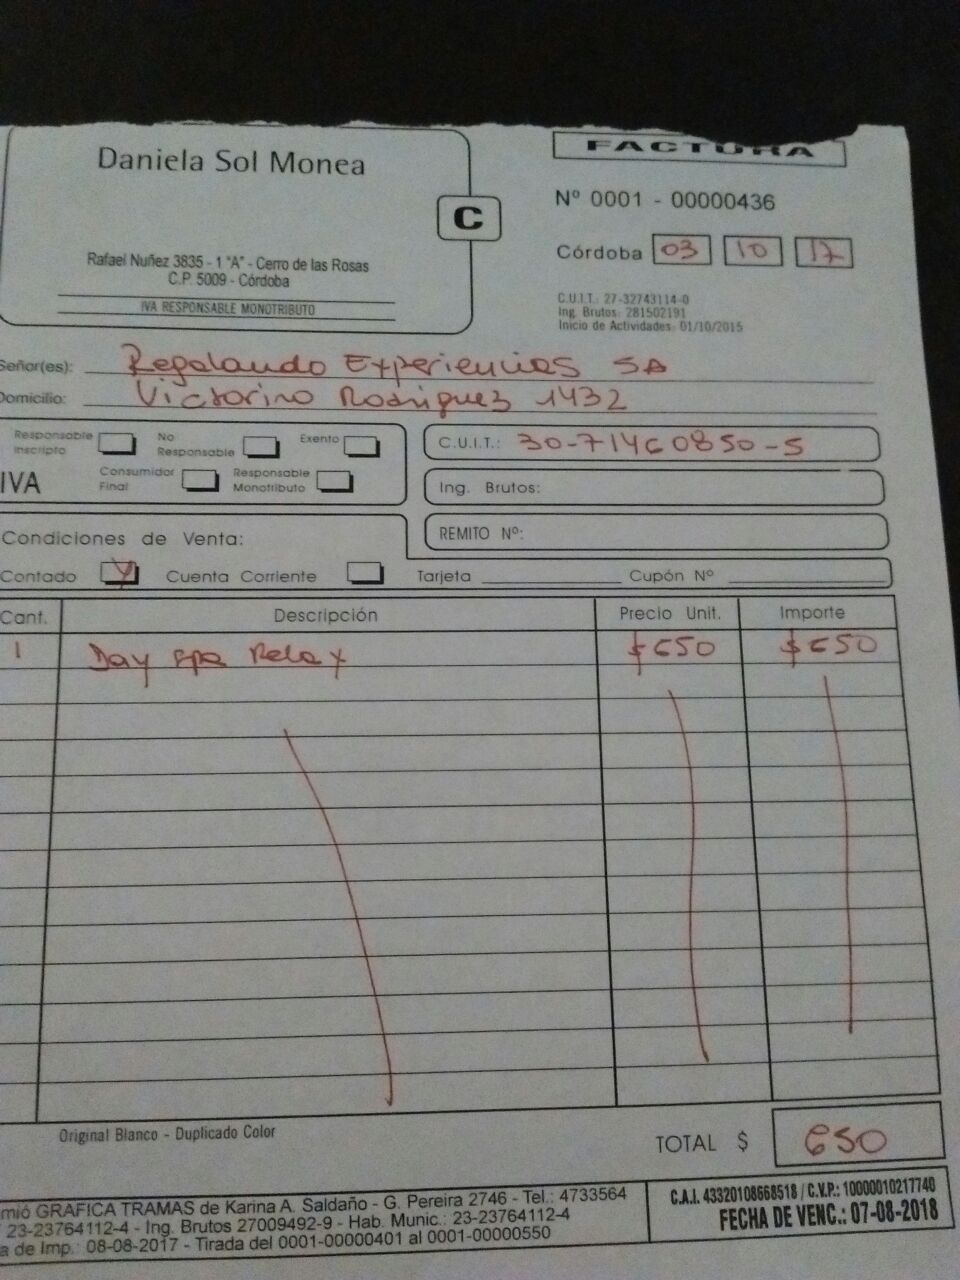 FACTURA
Daniela Sol Monea
C
Nº 0001 - 00000436
Rafael Nuñez 3835 - 1 "A" - Cerro de las Rosas
C.P. 5009 - Córdoba
IVA RESPONSABLE MONOTRIBUTO
Córdoba 03 10 17
C.U.I.T.: 27-32743114-0
Ing. Brutos: 281502191
Inicio de Actividades: 01/10/2015
Señor(es): Regalando Experiencias SA
Domicilio: Victorino Rodriguez 1432
Responsable Inscripto
No Responsable
Exento
IVA
Consumidor Final
Responsable Monotributo
C.U.I.T.: 30-71460850-5
Ing. Brutos:
REMITO Nº:
Condiciones de Venta:
Contado
Cuenta Corriente
Tarjeta
Cupón Nº
Cant. Descripción Precio Unit. Importe
1 Day spa Relax $650 $650
Original Blanco - Duplicado Color
TOTAL $ 650
mió GRAFICA TRAMAS de Karina A. Saldaño - G. Pereira 2746 - Tel.: 4733564
23-23764112-4 - Ing. Brutos 27009492-9 - Hab. Munic.: 23-23764112-4
a de Imp.: 08-08-2017 - Tirada del 0001-00000401 al 0001-00000550
C.A.I. 43320108668518 / C.V.P.: 10000010217740
FECHA DE VENC.: 07-08-2018